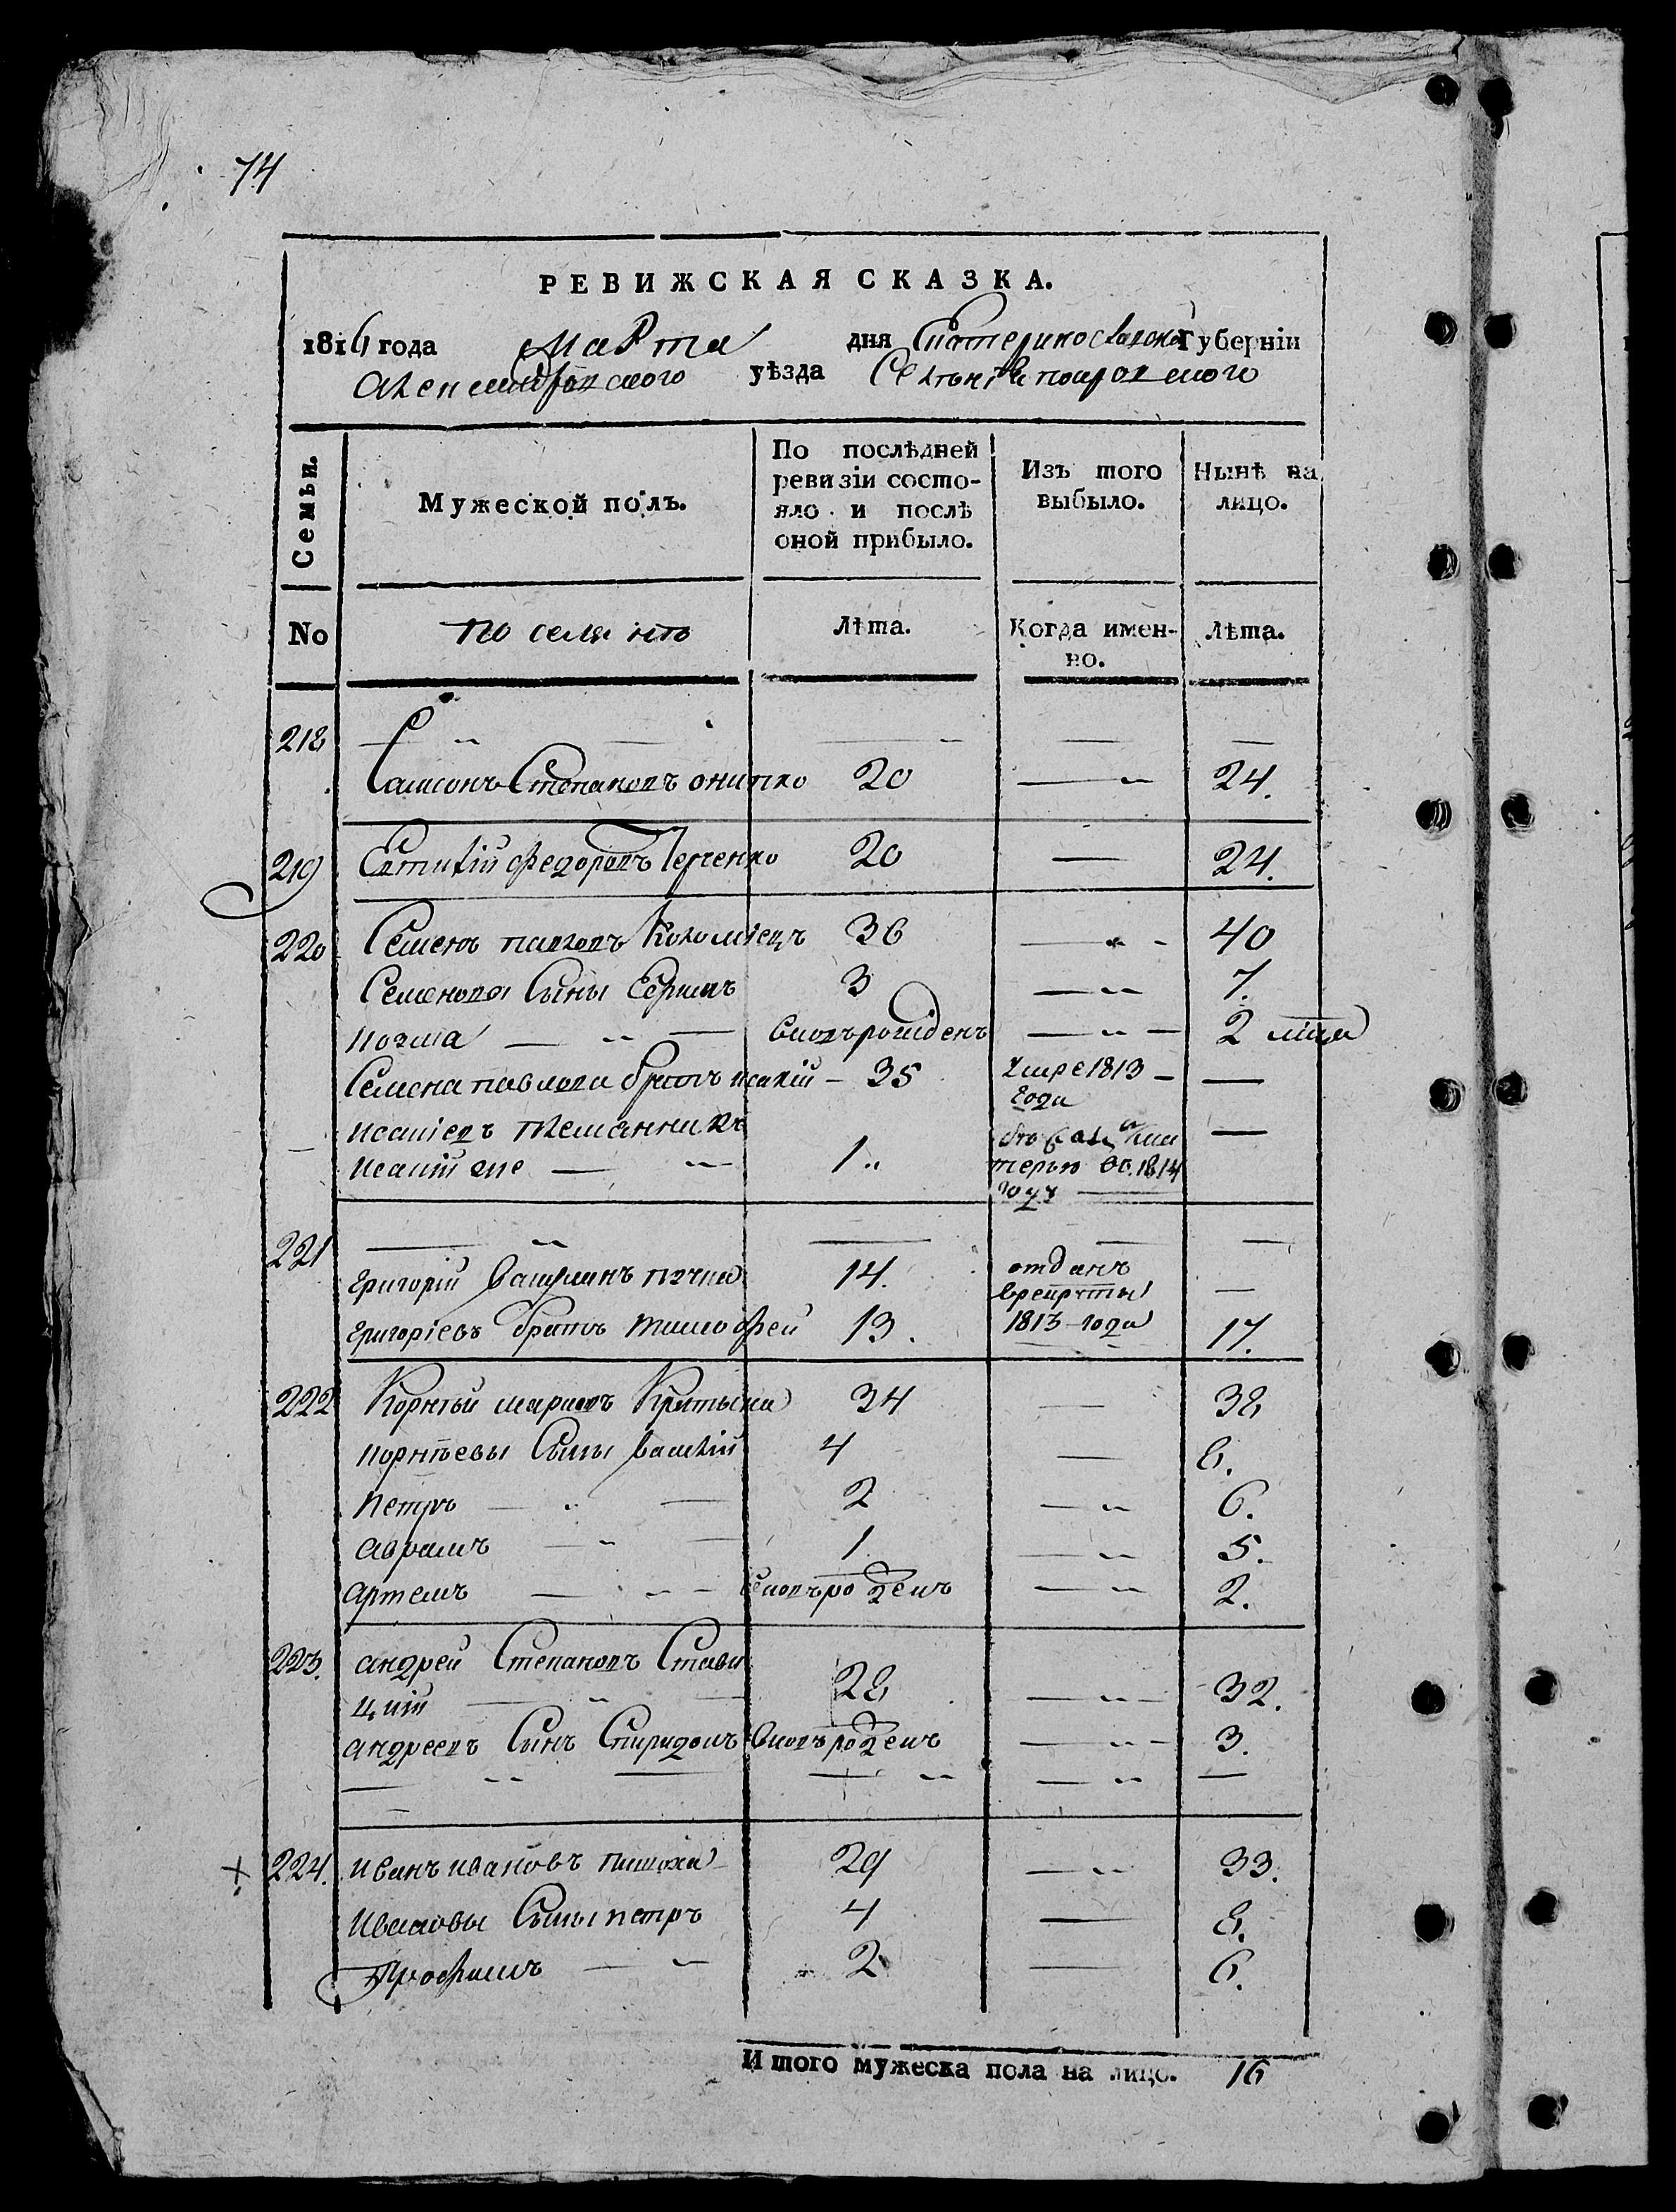 74
РЕВИЖСКАЯ СКАЗКА.
1816 года Марта дня Екатеринославской Губерніи
Александровского уѣзда Селенія покровского
Семьи.
Мужеской полъ.
По послѣдней ревизіи состояло и послѣ оной прибыло.
Изъ того выбыло.
Нынѣ на лицо.
No
Лѣта.
Когда именно.
Лѣта.
218 — — — —
Самсонъ Степановъ онипко 20 — 24.
219 Евтихій Федоровъ 20 — 24.
220 Семенъ павловъ Коломіецъ 36 — 40
Семенова Сыны 3 — 7.
козма — вновърожіденъ — 2 лѣта
Семена павлова братъ исакій — 35 умре 1813 года —
исакіевъ племянникъ
исакій же — 1 матерью въ 1814 году —
221 — — — —
Григорій 14. отданъ врекруты 1813 года —
Григоріевъ братъ тимофей 13. — 17.
222 Корнѣй марковъ 34 — 38
корнѣевы Сыны василій 4 — 8.
петръ — 2 — 6.
аврамъ — 1 — 5.
артемъ — вновърожденъ — 2.
223. андрей Степановъ Стави
цкій — 28 — 32.
андреевъ Сынъ Спиридонъ вновърожденъ — 3.
— — — —
224. иванъ ивановъ 29 — 33.
ивановы Сыны петръ 4 — 8.
Трофимъ — 2 — 6.
Итого мужеска пола на лицо. 16